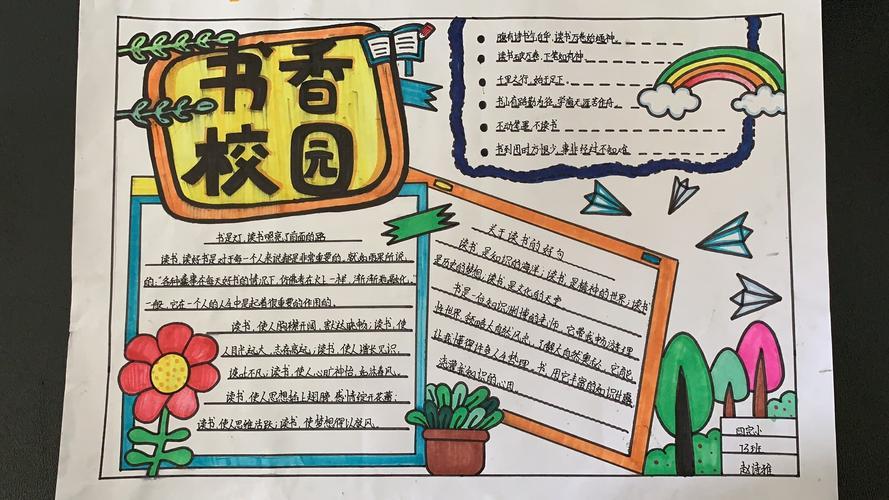 书香
校园
腹有诗书气自华,读书万卷始通神。
读书破万卷,下笔如有神。
千里之行,始于足下。
书山有路勤为径,学海无涯苦作舟。
不动笔墨不读书
书到用时方恨少,事非经过不知难
书是灯,读书照亮了前面的路
读书,读好书是对于每一个人来说都是非常重要的,就如雨果所说
的:"各种蠢事在每天好书的情况下,仿佛烤在火上一样,渐渐地融化。"
一般,它在一个人的人生中是起着很重要的作用的。
读书,使人胸襟开阔,豁达晓畅;读书,使
人目光远大,志存高远;读书,使人增长见识,
谈吐不凡;读书,使人心旷神怡
读书,使人思想插上翅膀,感情绽开花蕾;
读书,使人思维活跃;读书,使梦想得以
关于读书的好句
读书,是知识的海洋;读书,是精神的世界;读书
是历史的梦想,读书,是文化的天堂
书是一位知识渊博的老师,它带我畅游
世界,领略大自然风光,了解大自然,它能
让我懂得许多人生哲理。书,用它丰富的知识
知识的心田
四完小
班